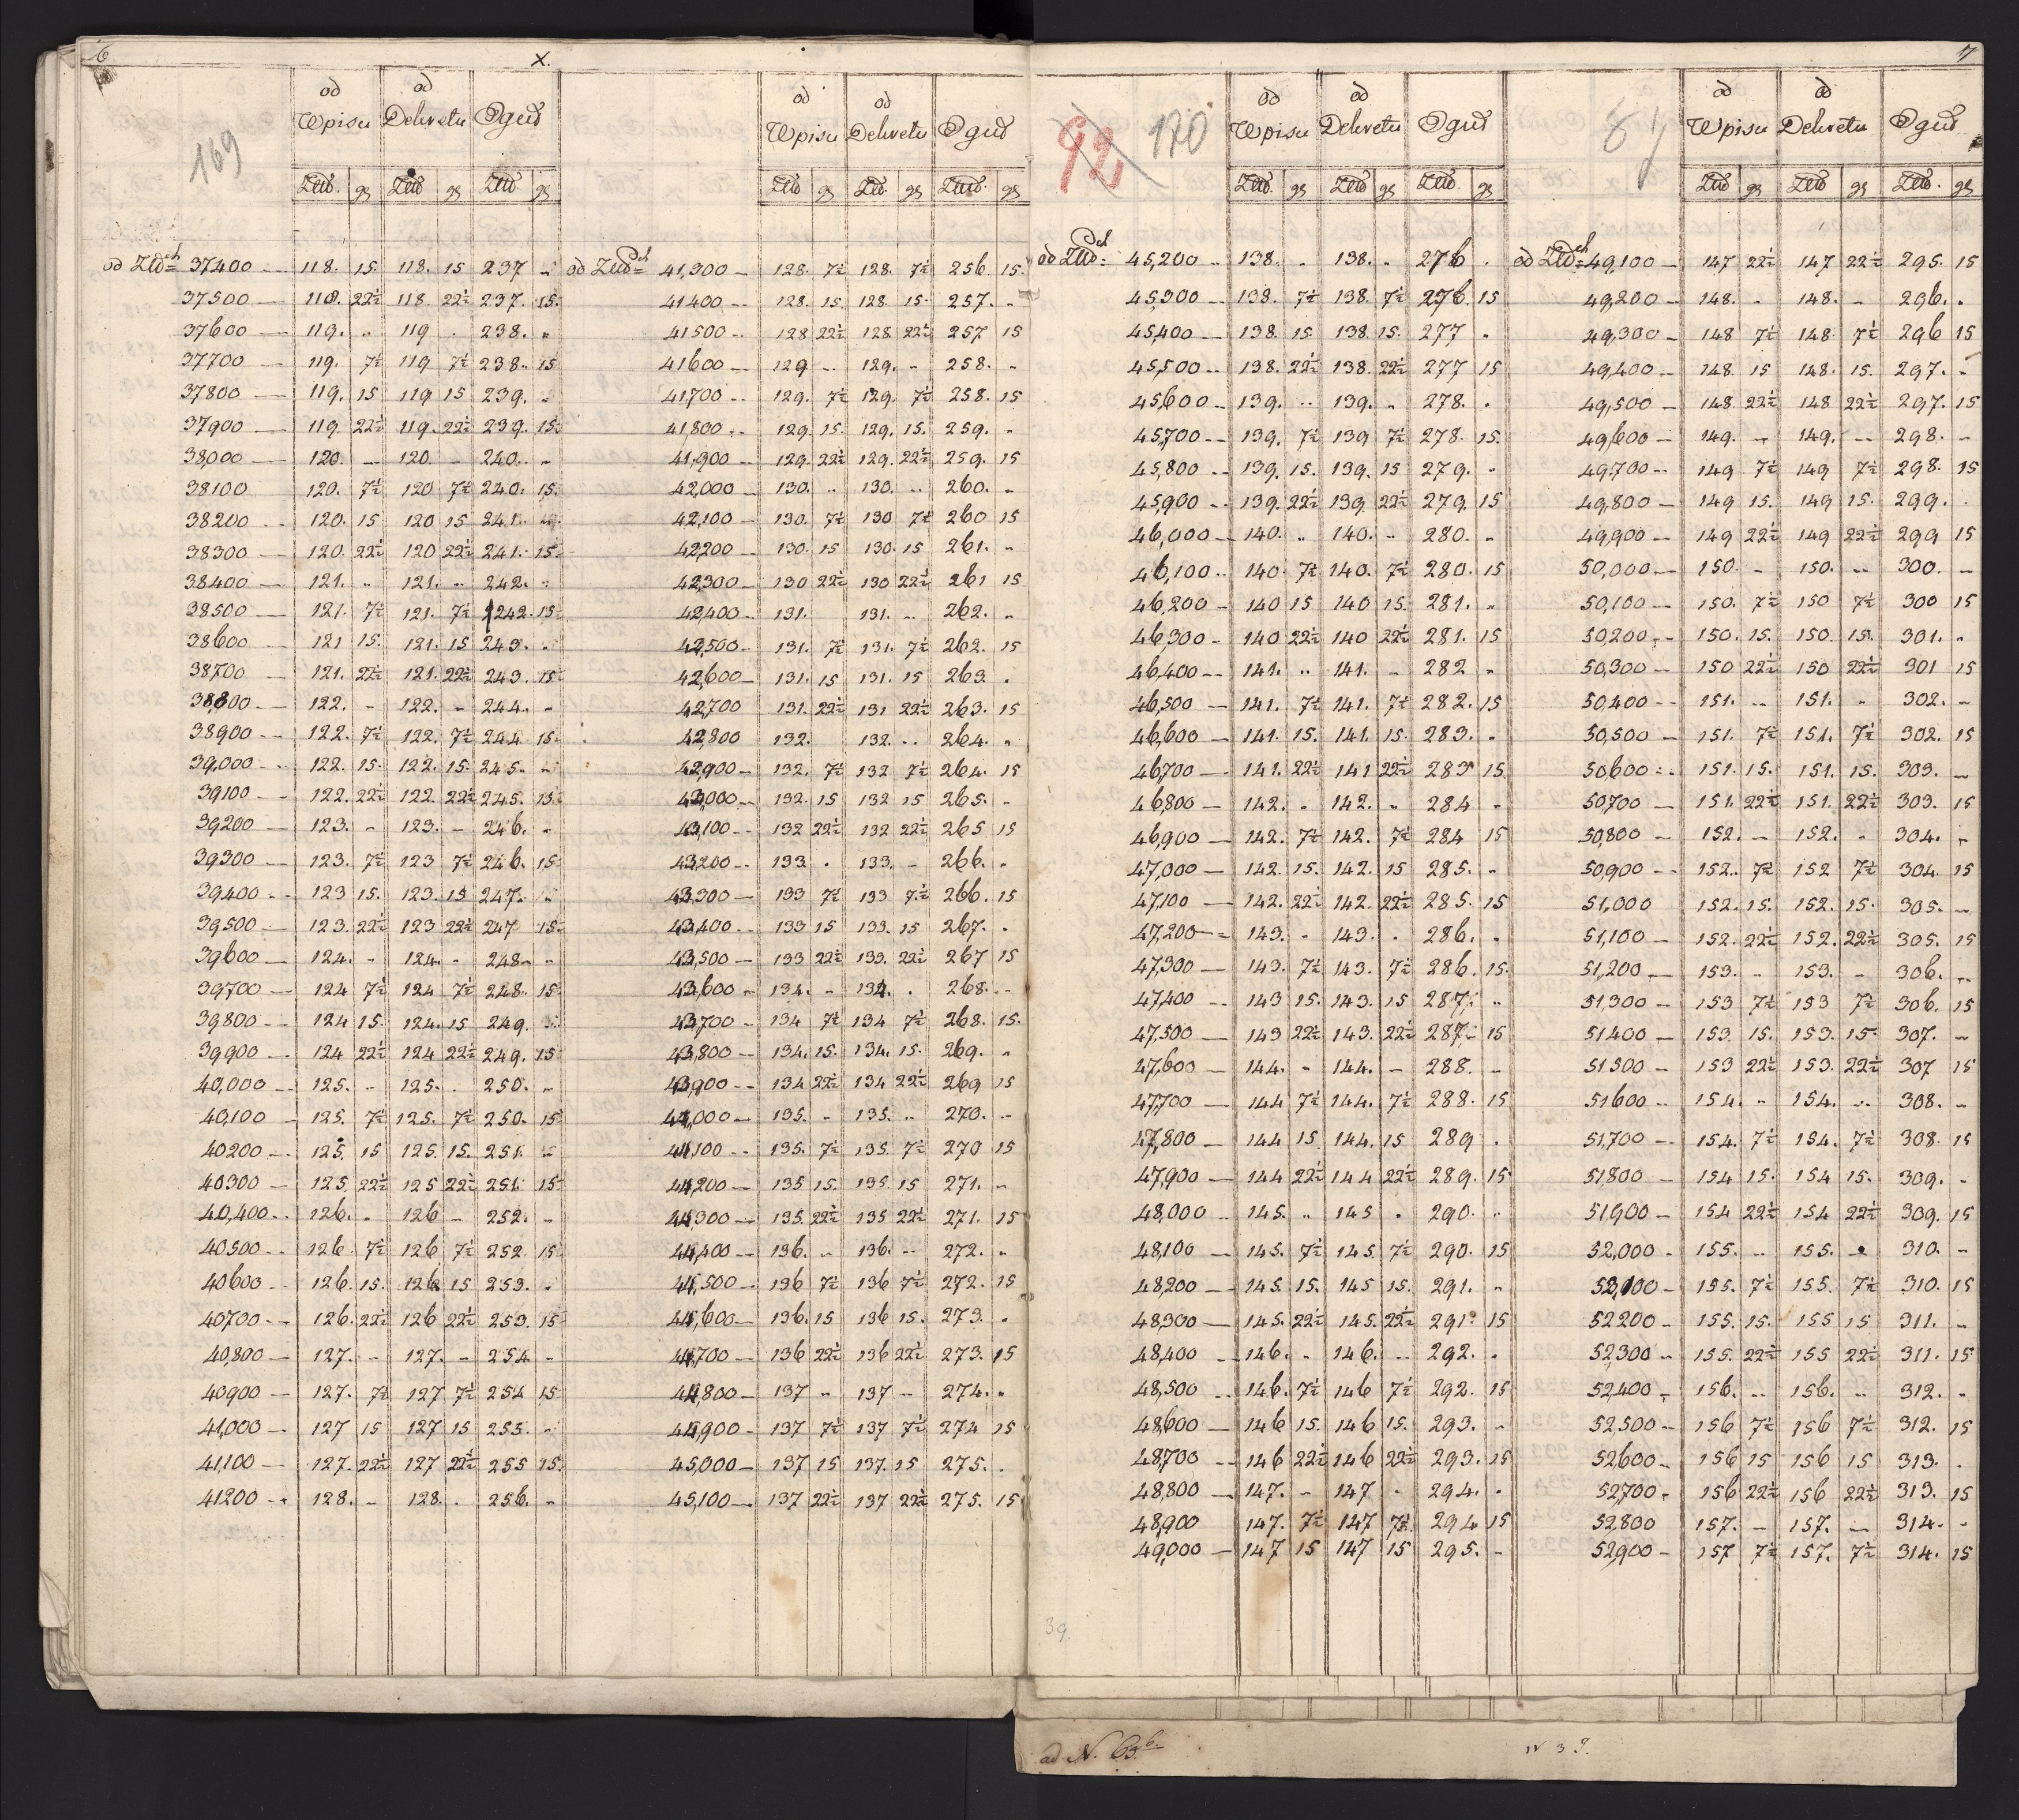 6
X.
169
od Wpisu od Dekretu Oguł
Złł. gr Złł gr Złł gr
od Złłch 37400 — 118. 15. 118. 15 237 „
37500 — 118. 22½ 118 22½ 237. 15.
37600 — 119. „ 119 „ 238. „
37700 — 119. 7½ 119 7½ 238. 15
37800 — 119. 15 119 15 239. „
37900 — 119 22½ 119. 22½ 239. 15
38,000 — 120. — 120. — 240. „
38100 120. 7½ 120 7½ 240. 15.
38200 „ 120. 15 120 15 241.
38300 — 120. 22½ 120 22½ 241. 15
38400 — 121. „ 121. „ 242. „
38500 — 121. 7½ 121. 7½ 242. 15
38600 — 121 15. 121. 15 243. „
38700 — 121. 22½ 121. 22½ 243. 15
38,800 — 122. „ 122. „ 244. „
38900 — 122. 7½ 122. 7½ 244 15
39,000 — 122. 15. 122. 15. 245. „
39100 — 122. 22½ 122. 22½ 245. 15
39200 — 123. „ 123. — 246. „
39300 — 123. 7½ 123 7½ 246. 15
39400 — 123 15. 123. 15 247. „
39500 — 123. 22½ 123 22½ 247 15
39600 — 124. „ 124. „ 248 „
39700 — 124 7½ 124 7½ 248. 15
39800 — 124 15. 124. 15 249. „
39900 — 124 22½ 124 22½ 249. 15
40,000 — 125. „ 125. . 250. „
40,100 — 125. 7½ 125. 7½ 250. 15
40200 — 125. 15 125. 15. 251. „
40300 — 125. 22½ 125 22½ 251 15
40,400 „ 126. „ 126 — 252. „
40500 „ 126. 7½ 126 7½ 252. 15
40600 „ 126 15. 126 15 253. „
40700 — 126. 22½ 126 22½ 253. 15
40,800 — 127. „ 127. „ 254 „
40900 — 127. 7½ 127 7½ 254 15
41,000 — 127 15 127 15 255. „
41,100 — 127. 22½ 127 22½ 255 15.
41200 — 128. „ 128. . 256. „
od Wpisu od Dekretu Oguł
Złł gr Złł. gr Złł. gr
od Złłch 41,300 — 128. 7½ 128. 7½ 256 15.
41400 — 128. 15. 128. 15. 257. „
41500 — 128 22½ 128. 22½ 257 15
41600 — 129 „ 129. „ 258. „
41700 — 129. 7½ 129. 7½ 258. 15
41,800 „ 129. 15. 129. 15. 259. „
41,900 — 129. 22½ 129. 22½ 259. 15
42,000 — 130. „ 130. „ 260. „
42,100 — 130. 7½ 130 7½ 260 15
42200 — 130. 15 130. 15 261. „
42,300 — 130 22½ 130 22½ 261 15
42,400 — 131. 131. „ 262. „
42,500 — 131. 7½ 131. 7½ 262. 15
42,600 — 131. 15 131. 15 263. .
42,700 131. 22½ 131 22½ 263. 15
42,800 132. 132. „ 264. „
42,900 — 132. 7½ 132 7½ 264. 15
43,000 — 132. 15 132 15 265. „
43,100 — 132 22½ 132 22½ 265 15
43200 — 133 . 133. — 266. „
43,300 — 133 7½ 133 7½ 266. 15
43,400 — 133 15 133. 15 267. .
43,500 — 133 22½ 133. 22½ 267 15
43,600 „ 134. „ 134. . 268. „
43,700 „ 134 7½ 134 7½ 268. 15.
43,800 — 134. 15. 134. 15. 269. „
43,900 — 134 22½ 134 22½ 269 15
44,000 — 135. „ 135. „ 270. „
44,100 — 135. 7½ 135. 7½ 270 15
44,200 — 135 15. 135. 15 271. „
44,300 — 135. 22½ 135 22½ 271. 15
44,400 — 136. „ 136. „ 272. „
44,500 — 136 7½ 136 7½ 272. 15
44,600 — 136. 15 136 15. 273. .
44,700 — 136 22½ 136 22½ 273. 15
44,800 — 137 „ 137 — 274. „
44,900 — 137 7½ 137 7½ 274 15
45,000 — 137 15 137. 15 275. .
45,100 — 137 22½ 137 22½ 275. 15
7
92
170
od Wpisu od Dekretu Oguł
Złł. gr Złł gr Złł. gr
od Złłch 45,200 „ 138. „ 138. „ 276 .
45,300 — 138. 7½ 138. 7½ 276. 15
45,400 — 138. 15. 138. 15. 277 „
45,500 — 138. 22½ 138. 22½ 277 15
45,600 „ 139. „ 139. „ 278. .
45,700 — 139. 7½ 139 7½ 278. 15.
45,800 — 139. 15. 139. 15 279. „
45,900 — 139. 22½ 139. 22½ 279. 15
46,000 — 140. „ 140. „ 280. „
46,100 „ 140. 7½ 140. 7½ 280. 15
46,200 — 140 15 140 15. 281. „
46,300 „ 140 22½ 140 22½ 281. 15
46,400 — 141. „ 141. — 282 „
46,500 — 141. 7½ 141. 7½ 282. 15
46,600 — 141. 15. 141. 15. 283. „
46,700 — 141. 22½ 141 22½ 283 15
46,800 — 142. „ 142. „ 284 „
46,900 — 142. 7½ 142. 7½ 284 15
47,000 — 142. 15. 142. 15 285. „
47,100 — 142. 22½ 142. 22½ 285. 15
47,200 — 143. „ 143. . 286. „
47,300 — 143. 7½ 143. 7½ 286. 15.
47,400 „ 143 15. 143. 15 287. „
47,500 — 143 22½ 143. 22½ 287. 15
47,600 — 144. „ 144. — 288. „
47,700 — 144 7½ 144. 7½ 288. 15
47,800 — 144 15. 144. 15 289 .
47,900 — 144 22½ 144 22½ 289. 15
48,000 „ 145. „ 145 „ 290. „
48,100 — 145. 7½ 145 7½ 290. 15
48,200 — 145. 15. 145 15. 291. „
48,300 — 145. 22½ 145. 22½ 291. 15
48,400 — 146. „ 146. „ 292. „
48,500 „ 146. 7½ 146 7½ 292. 15
48,600 — 146 15. 146 15. 293. „
48,700 — 146 22½ 146 22½ 293. 15
48,800 — 147. „ 147 „ 294. „
48,900 147. 7½ 147 7½ 294 15
49,000 — 147 15 147 15 295. „
od Wpisu od Dekretu Oguł
Złł gr Złł gr Złł. gr
od Złłch 49,100 — 147 22½ 147 22½ 295. 15
49,200 — 148. „ 148. „ 296. „
49,300 — 148 7½ 148. 7½ 296 15
49,400 — 148. 15 148. 15. 297. „
49,500 — 148 22½ 148 22½ 297. 15
49,600 — 149. „ 149. — 298. „
49,700 — 149 7½ 149 7½ 298. 15
49,800 — 149 15. 149 15. 299. .
49,900 — 149 22½ 149 22½ 299 15
50,000 — 150. „ 150. „ 300. —
50,100 — 150. 7½ 150 7½ 300 15
50,200 — 150. 15. 150. 15. 301. „
50,300 — 150 22½ 150 22½ 301 15
50,400 — 151. „ 151. „ 302. „
50,500 — 151. 7½ 151. 7½ 302. 15
50,600 „ 151. 15. 151. 15. 303. —
50,700 — 151. 22½ 151. 22½ 303. 15
50,800 — 152. — 152. „ 304. „
50,900 — 152. 7½ 152 7½ 304. 15
51,000 152. 15. 152. 15. 305. —
51,100 — 152. 22½ 152. 22½ 305. 15
51,200 — 153. „ 153. „ 306. „
51,300 — 153 7½ 153 7½ 306. 15
51,400 — 153. 15. 153. 15. 307. —
51500 — 153 22½ 153. 22½ 307 15
51600 — 154. „ 154. „ 308. „
51,700 — 154. 7½ 154. 7½ 308. 15
51,800 — 154 15. 154 15. 309. „
51,900 — 154 22½ 154 22½ 309. 15
52,000 „ 155. „ 155. „ 310. —
52,100 — 155. 7½ 155. 7½ 310. 15
52200 — 155. 15. 155 15 311. „
52300 — 155. 22½ 155 22½ 311. 15
52,400 — 156. „ 156. „ 312. „
52,500 — 156 7½ 156 7½ 312. 15
52,600 — 156 15 156 15 313. .
52,700 — 156 22½ 156 22½ 313. 15
52,800 157. — 157. — 314. „
52,900 — 157 7½ 157. 7½ 314. 15
39.
ad N. 63 b.
N 39.